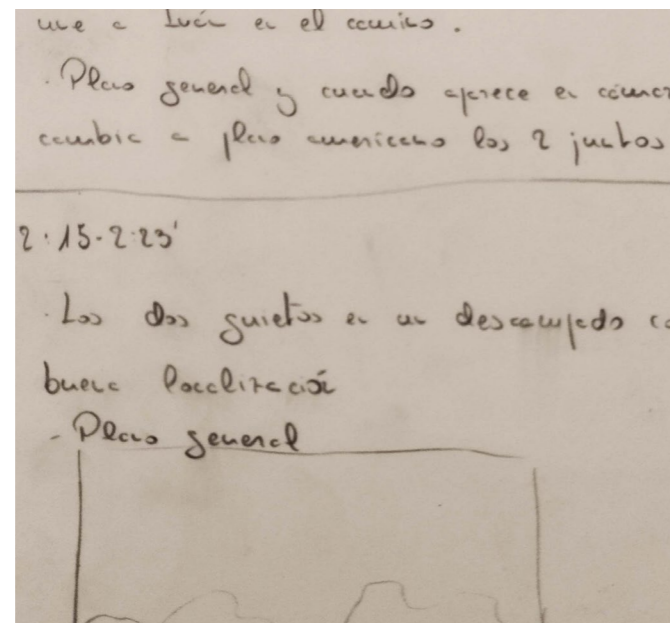 une a Iván en el camino.
· Plano general y cuando aparece en cámar
cambia a plano americano los 2 juntos
2:15-2:23'
· Los dos quietos en un descampado co
buena localización
- Plano general